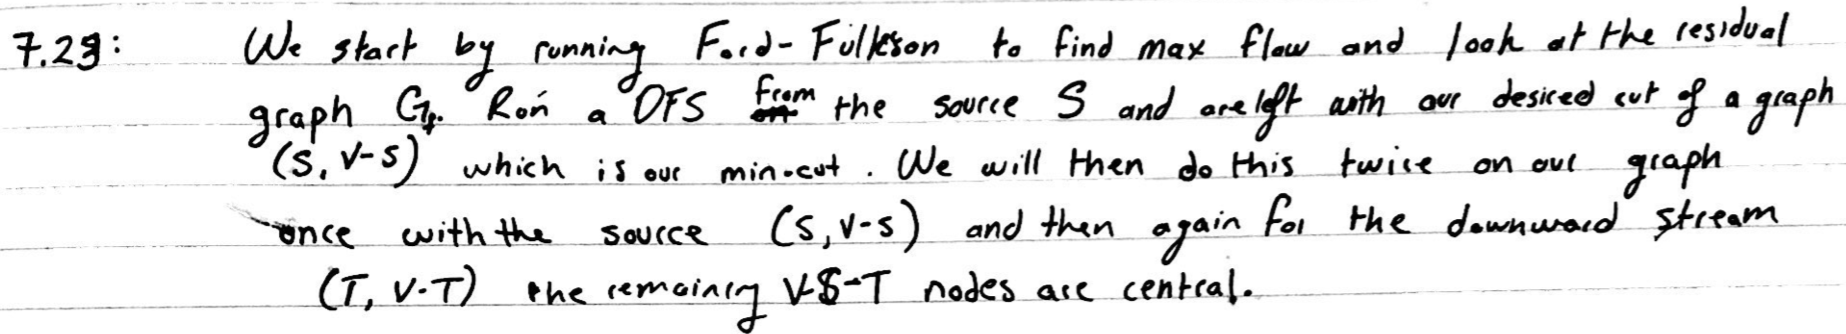 7.29: We start by running Ford-Fulkeson to find max flow and look at the residual
graph Gf. Run a DFS from the source S and are left with our desired cut of a graph
(S, V-S) which is our min-cut. We will then do this twice on our graph
once with the source (S, V-S) and then again for the downward stream
(T, V-T) the remaining V-S-T nodes are central.